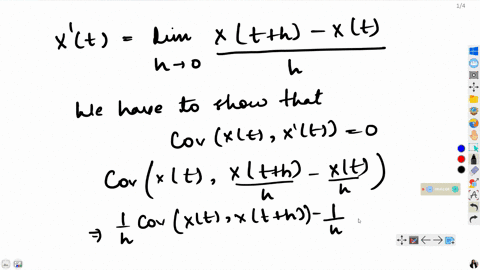 1/4
x'(t) = lim h→0 (x(t+h) - x(t)) / h
We have to show that
Cov (x(t), x'(t)) = 0
Cov (x(t), x(t+h)/h - x(t)/h)
⇒ 1/h Cov (x(t), x(t+h)) - 1/h